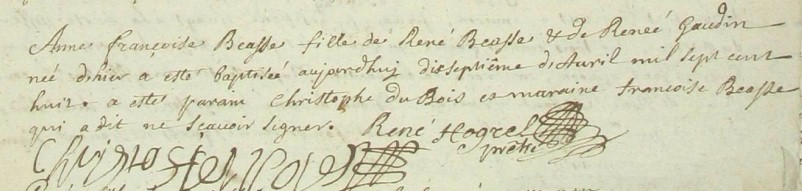 Anne françoise Beasse fille de René Beasse & de Reneé Gaudin
neé d'hier a esté baptiseé aujourdhuy dixseptiême d'Avril mil sept cent
huit. a esté parain Christophe du Bois et maraine francoise Beasse
qui a dit ne scavoir signer. René Hogrel
prêtre